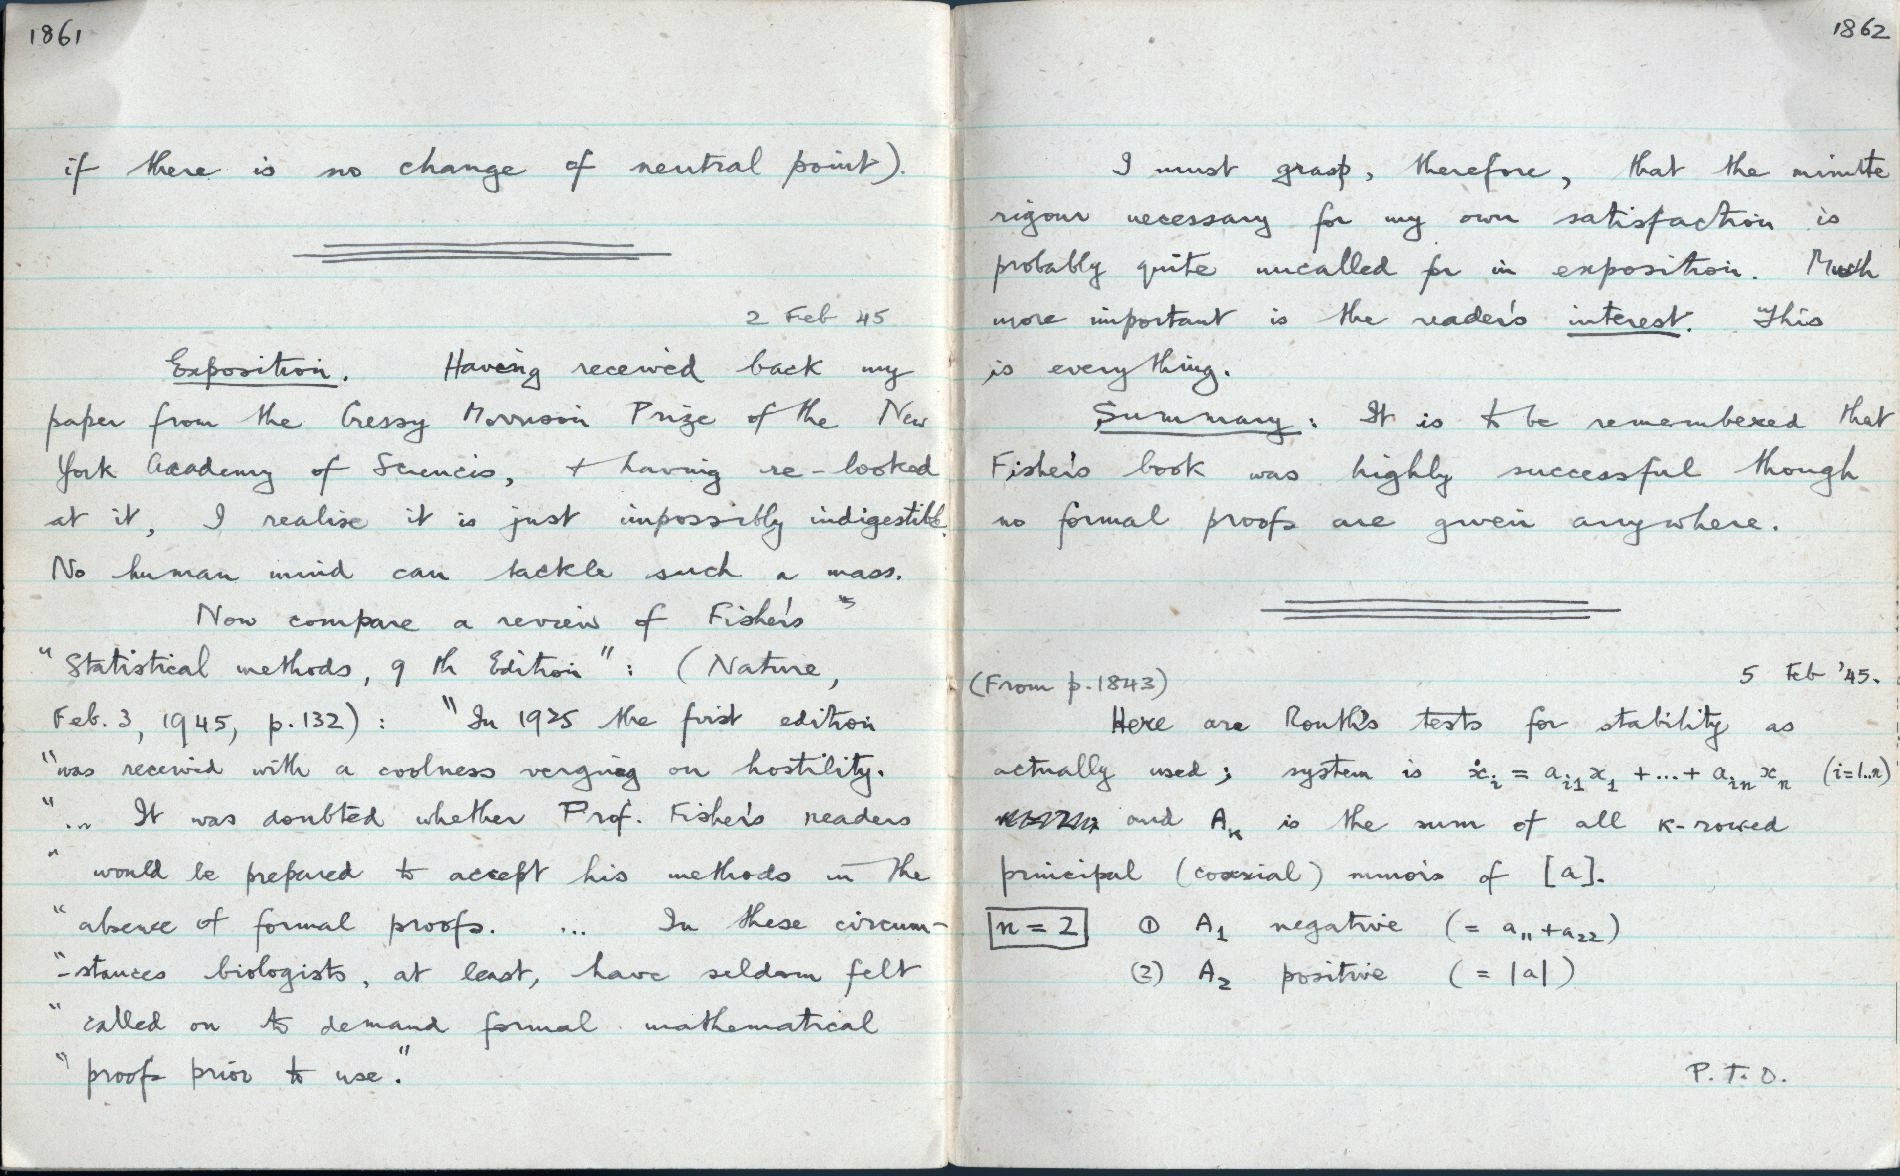 1861
if there is no change of neutral point).
2 Feb 45
Exposition. Having received back my
paper from the Cressy Morrison Prize of the New
York Academy of Sciences, + having re-looked
at it, I realise it is just impossibly indigestible.
No human mind can tackle such a mass.
Now compare a review of Fisher's
"Statistical methods, 9th Edition": (Nature,
Feb. 3, 1945, p.132): "In 1925 the first edition
"was received with a coolness verging on hostility.
"... It was doubted whether Prof. Fisher's readers
" would be prepared to accept his methods in the
"absence of formal proofs. ... In these circum-
"-stances biologists, at least, have seldom felt
" called on to demand formal mathematical
" proofs prior to use."
1862
I must grasp, therefore, that the minute
rigour necessary for my own satisfaction is
probably quite uncalled for in exposition. Much
more important is the reader's interest. This
is everything.
Summary: It is to be remembered that
Fisher's book was highly successful though
no formal proofs are given anywhere.
5 Feb '45.
(From p.1843)
Here are Routh's tests for stability as
actually used; system is ẋᵢ = aᵢ₁x₁ + ... + aᵢₙxₙ (i=1..n)
and Aₖ is the sum of all k-rowed
principal (coaxial) minors of [a].
n = 2 ① A₁ negative (= a₁₁+a₂₂)
(2) A₂ positive (= |a|)
P.T.O.